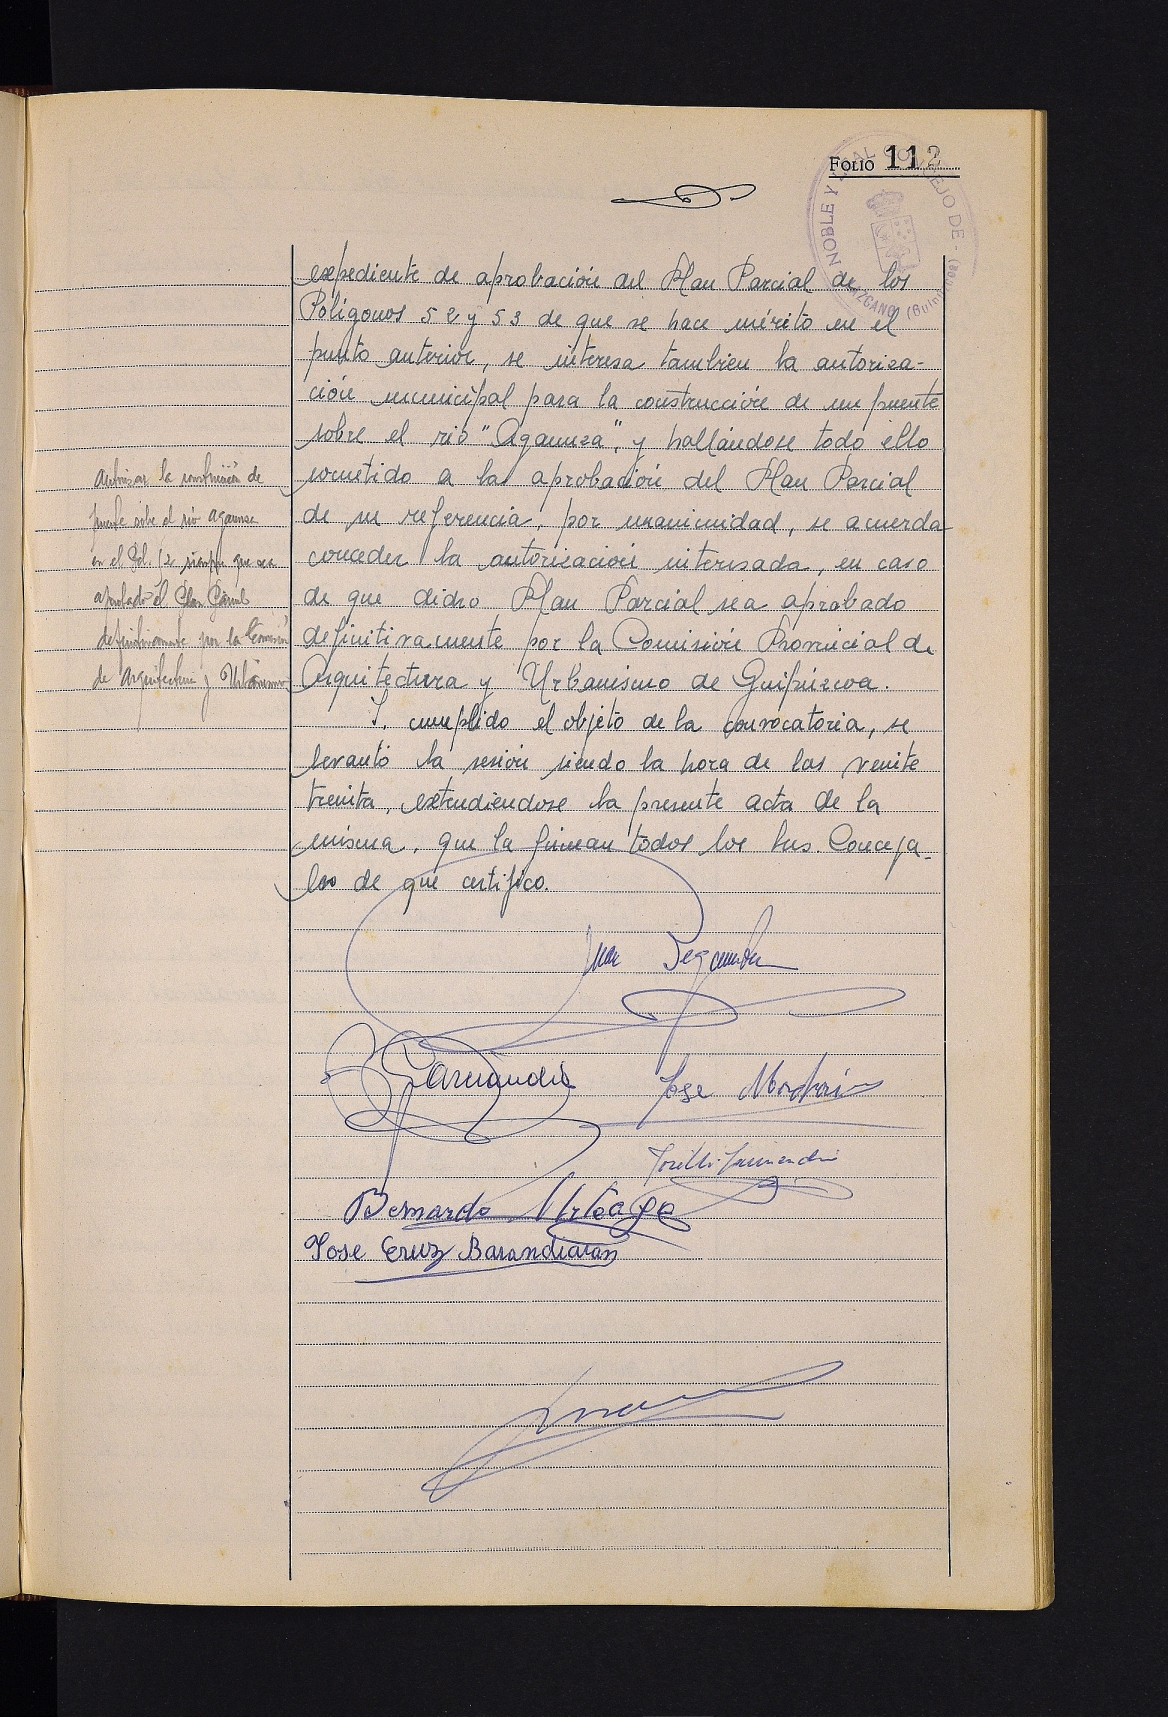 FOLIO 112
NOBLE Y LEAL CONCEJO DE - LAZCANO
expediente de aprobación del Plan Parcial de los
Polígonos 52 y 53 de que se hace mérito en el
punto anterior, se interesa tambien la autoriza-
ción municipal para la construcción de un puente
sobre el rio "Agaunza", y hallándose todo ello
sometido a la aprobación del Plan Parcial
de su referencia, por unanimidad, se acuerda
conceder la autorización interesada, en caso
de que dicho Plan Parcial sea aprobado
definitivamente por la Comisión Provincial de
Arquitectura y Urbanismo de Guipúzcoa.
Y, cumplido el objeto de la convocatoria, se
levantó la sesión siendo la hora de las veinte
treinta, extendiéndose la presente acta de la
misma, que la firman todos los Srs. Conceja-
les de que certifico.
Autorizar la construcción de
puente sobre el río Agaunza
en el Pol. siempre que sea
aprobado el Plan Parcial
definitivamente por la Comisión
de Arquitectura y Urbanismo
Juan
Jose
Bernardo Urteaga
Jose Cruz Barandiaran